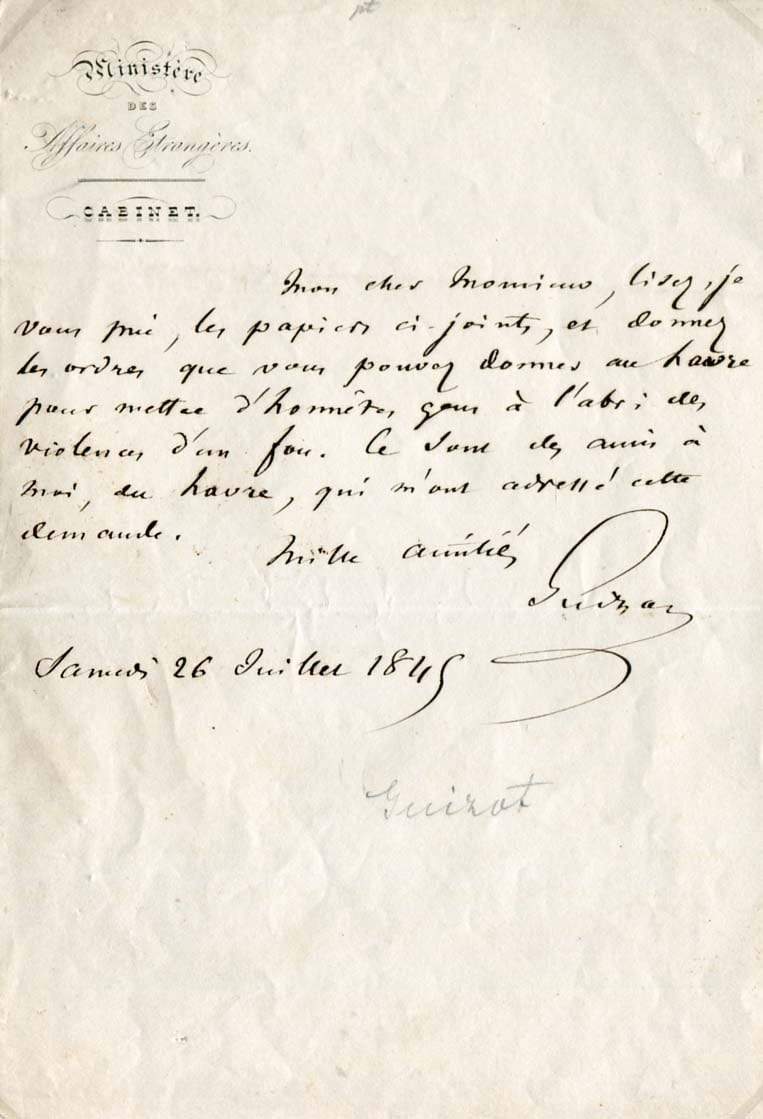 pt
Ministère
DES
Affaires Etrangères.
CABINET.
Mon cher Monsieur, lisez, je
vous prie, les papiers ci-joints, et donnez
les ordres que vous pouvez donner au havre
pour mettre d'honnêtes gens à l'abri des
violences d'un fou. Ce sont des amis à
moi, du havre, qui m'ont adressé cette
demande.
Mille amitiés
Guizot
Samedi 26 Juillet 1845
Guizot